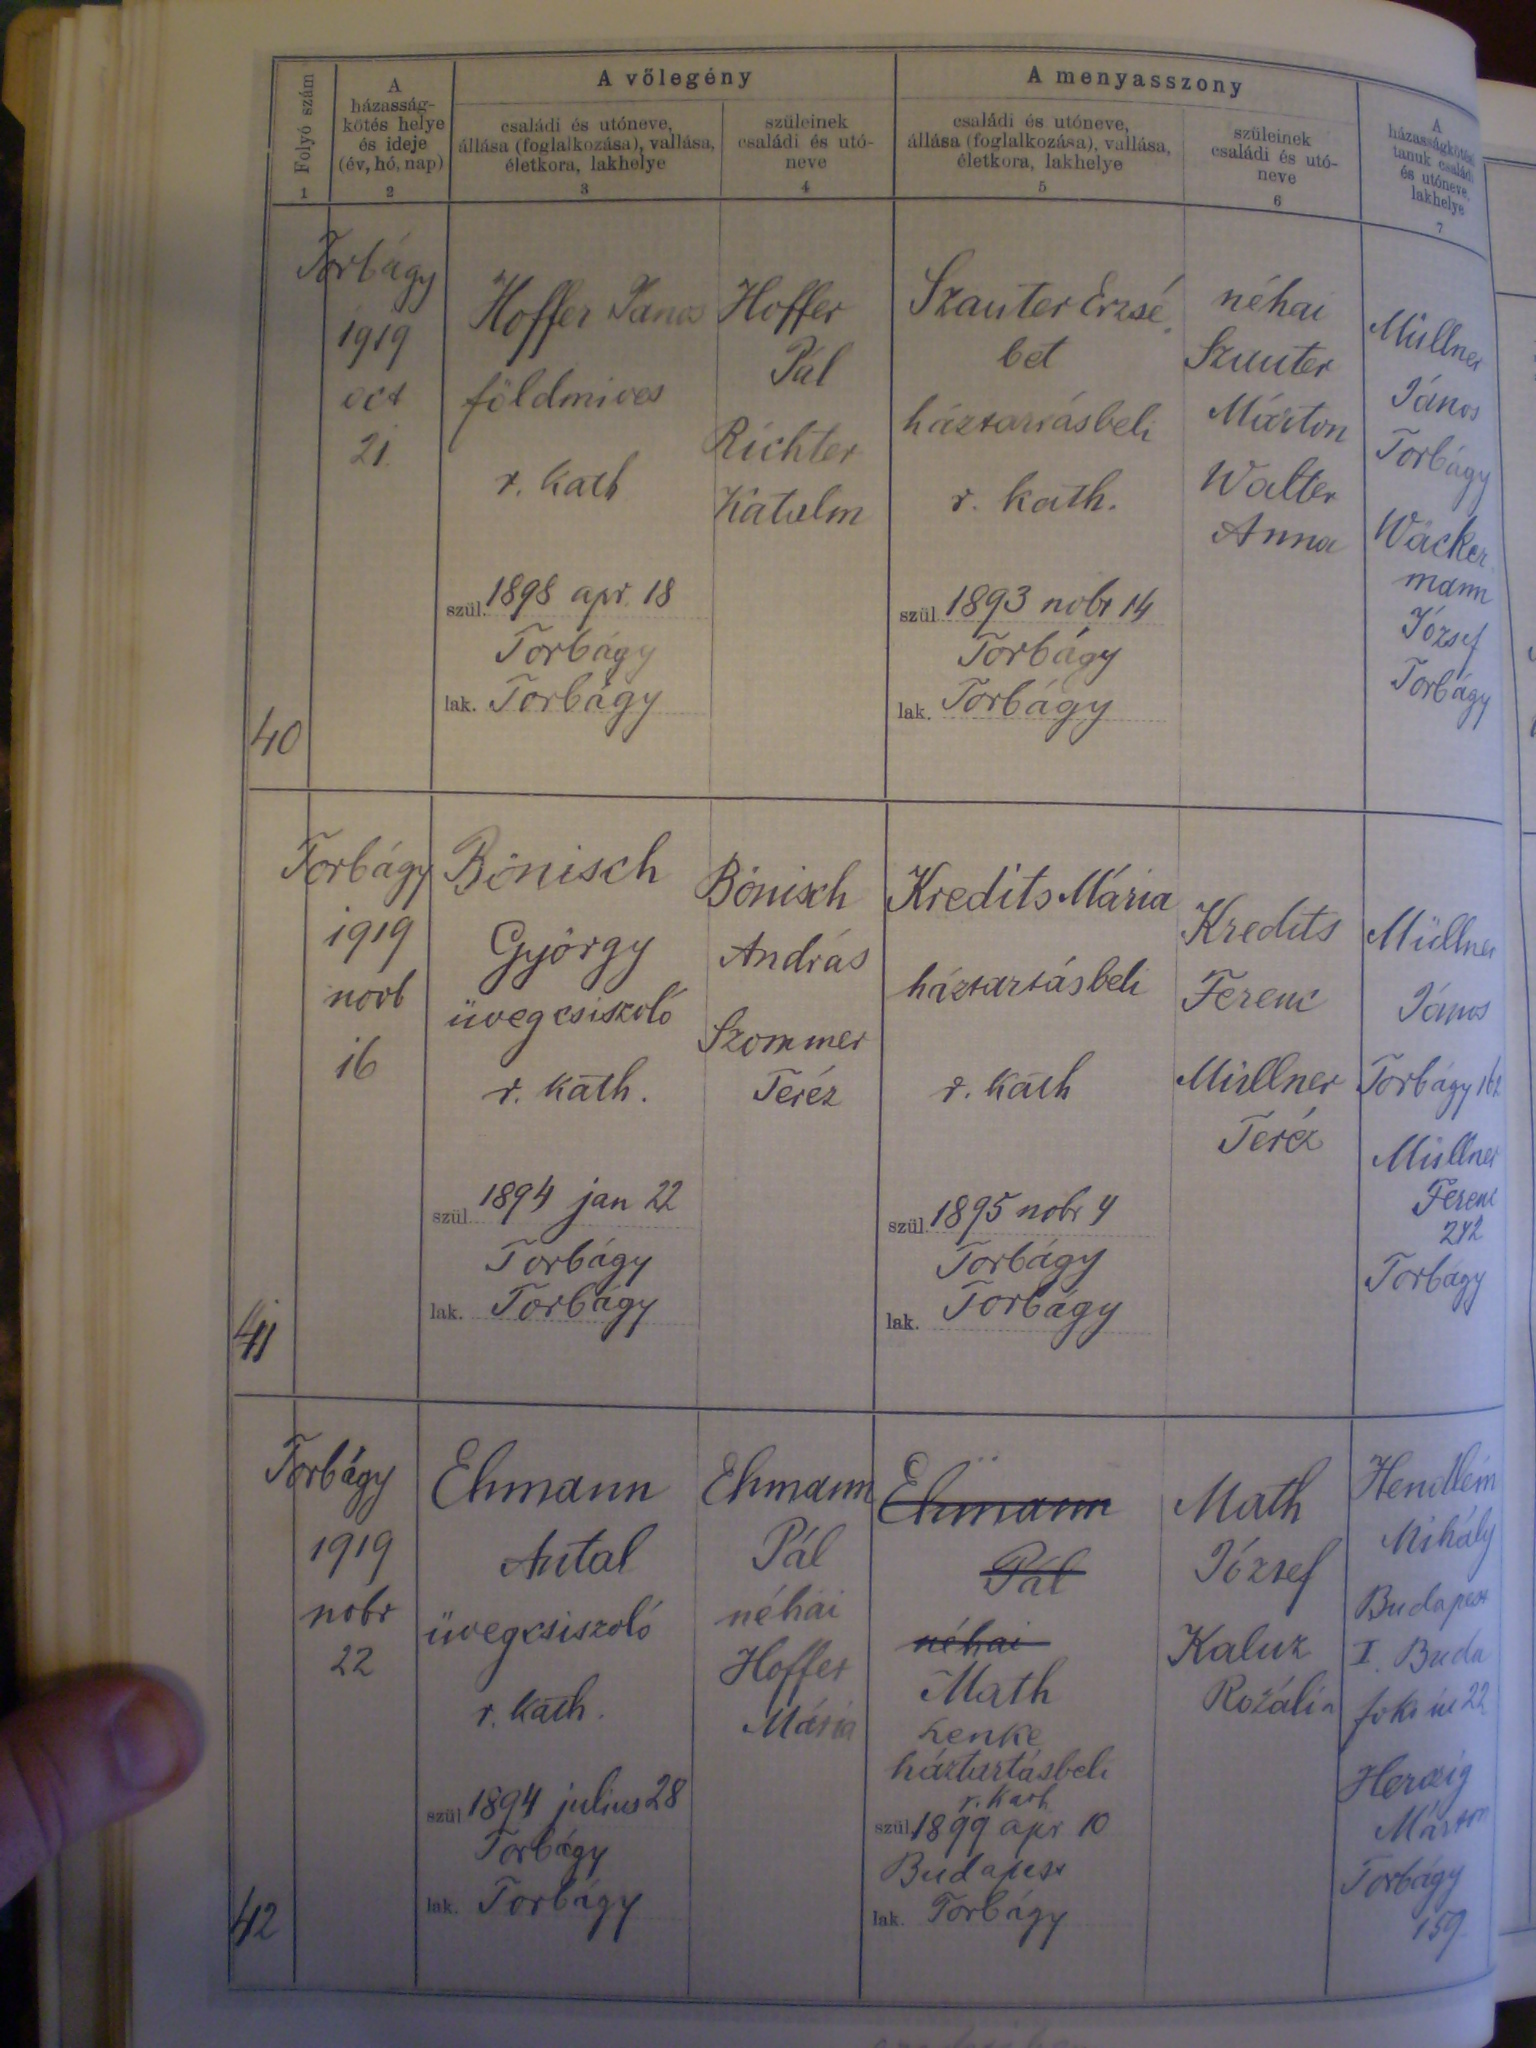 Folyó szám
1
A
házasság-
kötés helye
és ideje
(év, hó, nap)
2
A vőlegény
családi és utóneve,
állása (foglalkozása), vallása,
életkora, lakhelye
3
szüleinek
családi és utó-
neve
4
A menyasszony
családi és utóneve,
állása (foglalkozása), vallása,
életkora, lakhelye
5
szüleinek
családi és utó-
neve
6
A
házasságkötési
tanuk családi
és utóneve,
lakhelye
7
40
Torbágy
1919
oct
21.
Hoffer János
földmives
r. kath
szül. 1898 apr. 18
Torbágy
lak. Torbágy
Hoffer
Pál
Richter
Katalin
Szauter Erzsé
bet
háztartásbeli
r. kath.
szül. 1893 nobr 14
Torbágy
lak. Torbágy
néhai
Szauter
Márton
Walter
Anna
Müllner
János
Torbágy
Wacker
mann
József
Torbágy
41
Torbágy
1919
novb
16
Bönisch
György
üvegcsiszoló
r. kath.
szül. 1894 jan 22
Torbágy
lak. Torbágy
Bönisch
András
Szommer
Teréz
Kredits Mária
háztartásbeli
r. kath
szül. 1895 nobr 4
Torbágy
lak. Torbágy
Kredits
Ferenc
Müllner
Teréz
Müllner
János
Torbágy 162
Müllner
Ferenc
242
Torbágy
42
Torbágy
1919
nobr
22
Ehmann
Antal
üvegcsiszoló
r. kath.
szül. 1894 julius 28
Torbágy
lak. Torbágy
Ehmann
Pál
néhai
Hoffer
Mária
Ehmann
Pál
néhai
Math
Lenke
háztartásbeli
r. kath
szül. 1899 apr 10
Budapest
lak. Torbágy
Math
József
Kaluz
Rozália
Hendlein
Mihály
Budapest
I. Buda
foki út 22
Herczig
Márton
Torbágy
159